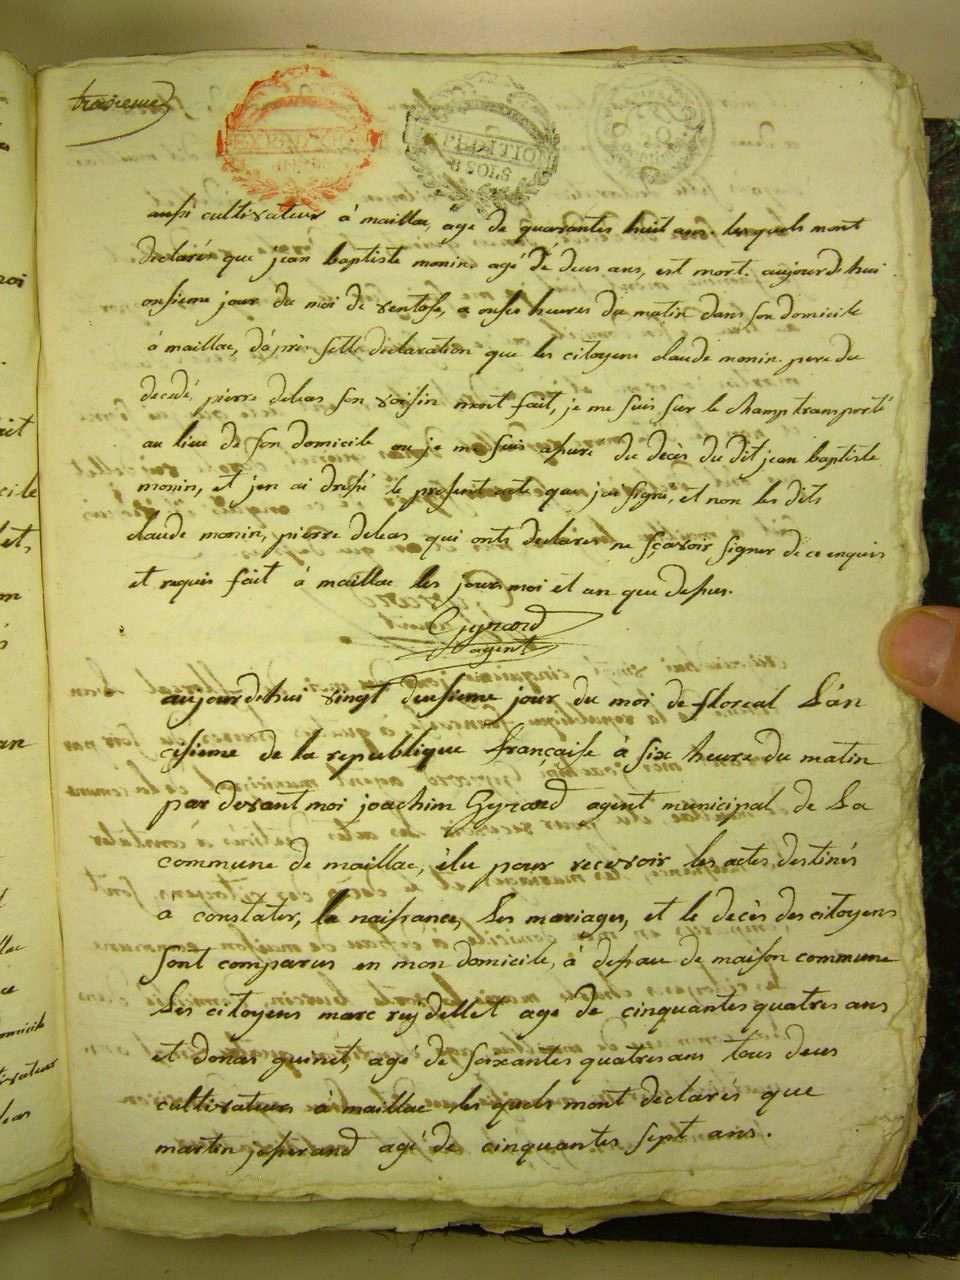 troisieme
aussi cultivateur à maillac, agé de quarantes huit ans. les quels mont
declarés que jean baptiste monin. agé dé deus ans, est mort. aujourdehui
onsieme jour du moi de ventose, a onses heures du matin dans son domicile
à maillac, d'après sette declaration que les citoyens claude monin. pere du
decedé, pierre deleas son voisin mont fait, je me suis sur le champ transporté
au lieu de son domicile ou je me suis asuré du decès du dit jean baptiste
monin, et j'en ai dressé le present acte que j'ai signé, et non les dits
claude monin, pierre deleas qui onts declares ne sçavoir signer de ce enquis
et requis fait à maillac les jours moi et an que dessus.
Gynard
agent
aujourdehui vingt deusieme jour du moi de floreal L'an
sisieme de la republique française à six heure du matin
par devant moi joachim Gynard agent municipal de La
commune de maillac, élu pour recevoir les actes destinés
a constater, la naissance, Les mariages, et le decès des citoyens
sont comparus en mon domicile, à desau de maison commune
Les citoyens marc reydellet age de cinquantes quatres ans
et donas guinet, agé de soixantes quatres ans tous deus
cultivateurs à maillac les quels mont declarés que
martin josserand agé de cinquantes sept ans.